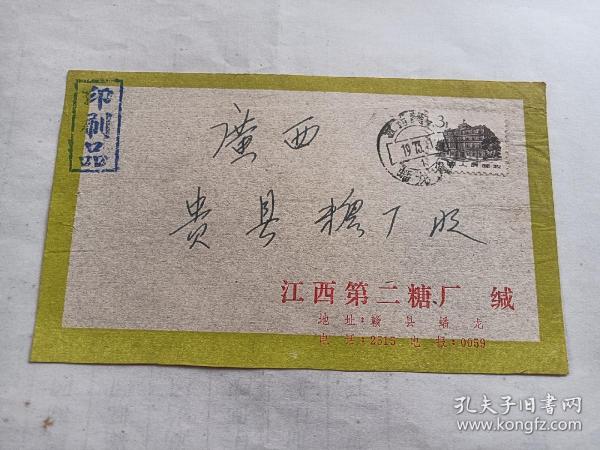 印刷品
广西
贵县糖厂收
江西第二糖厂 缄
地址:赣县蟠龙
电话:2315 电报:0059
孔夫子旧书网
www.kongfz.com